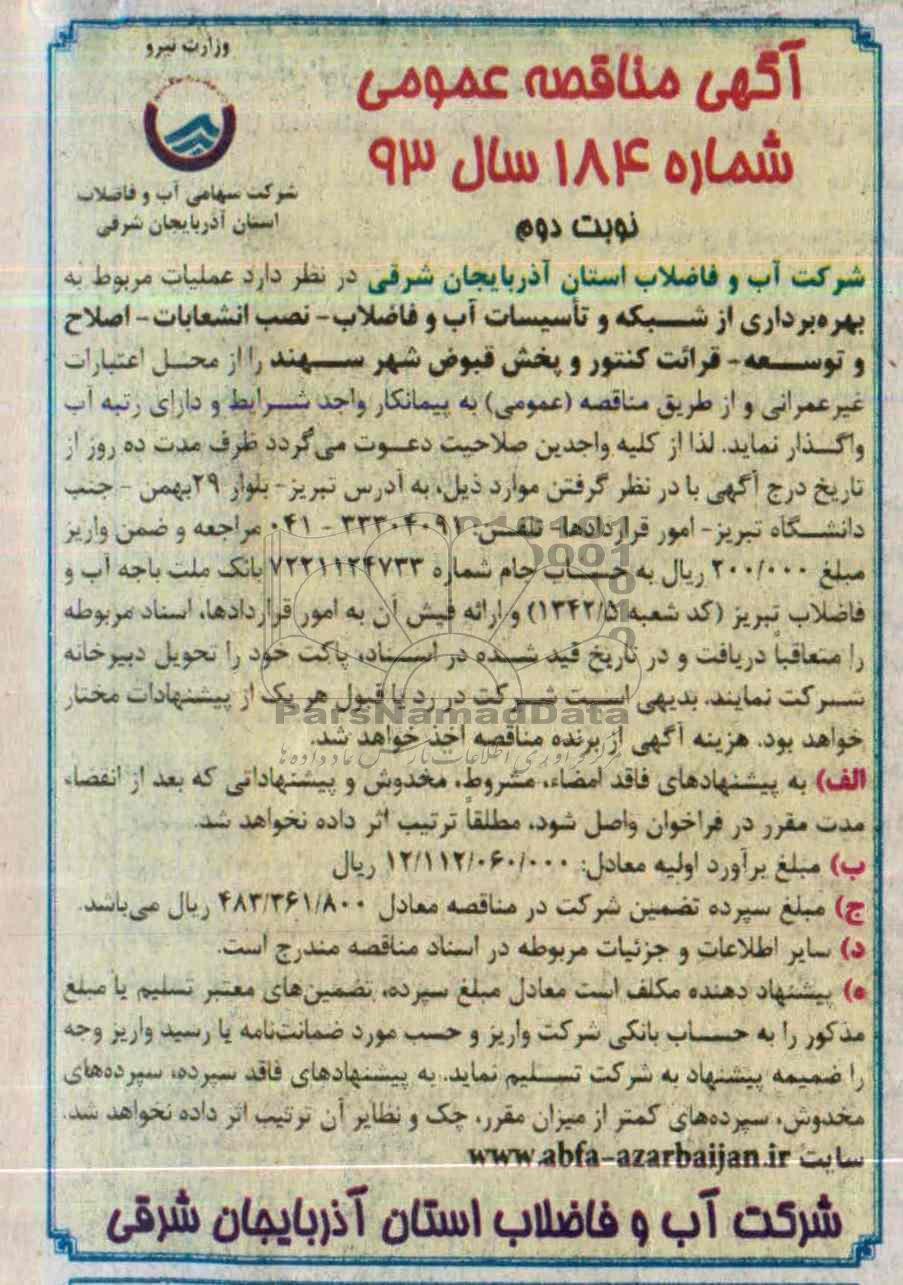 وزارت نیرو
شرکت سهامی آب و فاضلاب
استان آذربایجان شرقی
آگهی مناقصه عمومی
شماره ۱۸۴ سال ۹۳
نوبت دوم
شرکت آب و فاضلاب استان آذربایجان شرقی در نظر دارد عملیات مربوط به
بهره‌برداری از شبکه و تأسیسات آب و فاضلاب- نصب انشعابات- اصلاح
و توسعه- قرائت کنتور و پخش قبوض شهر سهند را از محل اعتبارات
غیرعمرانی و از طریق مناقصه (عمومی) به پیمانکار واجد شرایط و دارای رتبه آب
واگذار نماید. لذا از کلیه واجدین صلاحیت دعوت می‌گردد ظرف مدت ده روز از
تاریخ درج آگهی با در نظر گرفتن موارد ذیل، به آدرس تبریز- بلوار ۲۹بهمن - جنب
دانشگاه تبریز- امور قراردادها- تلفن: ۳۳۳۰۴۰۹۱ - ۰۴۱ مراجعه و ضمن واریز
مبلغ ۲۰۰/۰۰۰ ریال به حساب جام شماره ۷۲۲۱۱۲۴۷۳۳ بانک ملت باجه آب و
فاضلاب تبریز (کد شعبه ۱۳۴۲/۵) و ارائه فیش آن به امور قراردادها، اسناد مربوطه
را متعاقباً دریافت و در تاریخ قید شده در اسناد، پاکت خود را تحویل دبیرخانه
شرکت نمایند. بدیهی است شرکت در رد یا قبول هر یک از پیشنهادات مختار
خواهد بود. هزینه آگهی از برنده مناقصه اخذ خواهد شد.
ParsNamadData
الف) به پیشنهادهای فاقد امضاء، مشروط، مخدوش و پیشنهاداتی که بعد از انقضاء
مدت مقرر در فراخوان واصل شود، مطلقاً ترتیب اثر داده نخواهد شد.
ب) مبلغ برآورد اولیه معادل: ۱۲/۱۱۲/۰۶۰/۰۰۰ ریال
ج) مبلغ سپرده تضمین شرکت در مناقصه معادل ۴۸۳/۳۶۱/۸۰۰ ریال می‌باشد.
د) سایر اطلاعات و جزئیات مربوطه در اسناد مناقصه مندرج است.
ه) پیشنهاد دهنده مکلف است معادل مبلغ سپرده، تضمین‌های معتبر تسلیم یا مبلغ
مذکور را به حساب بانکی شرکت واریز و حسب مورد ضمانت‌نامه یا رسید واریز وجه
را ضمیمه پیشنهاد به شرکت تسلیم نماید. به پیشنهادهای فاقد سپرده، سپرده‌های
مخدوش، سپرده‌های کمتر از میزان مقرر، چک و نظایر آن ترتیب اثر داده نخواهد شد.
سایت www.abfa-azarbaijan.ir
شرکت آب و فاضلاب استان آذربایجان شرقی